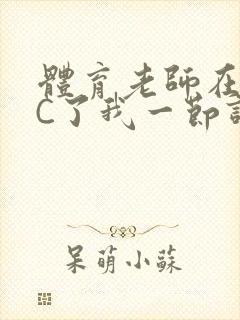 體育老師在
C了我一節
呆萌小蘇